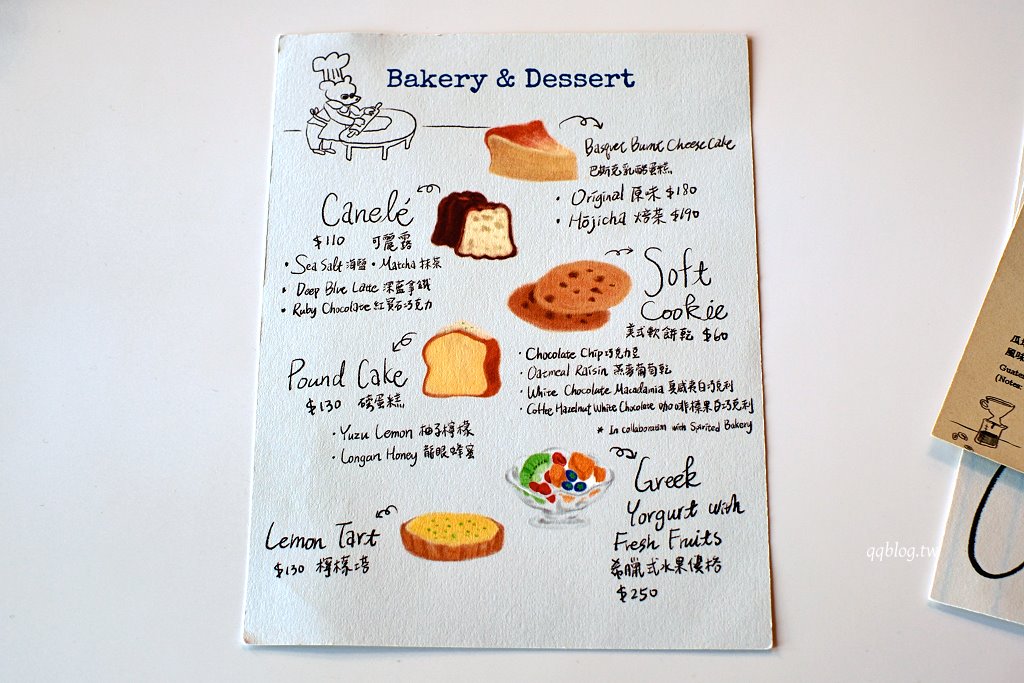 Bakery & Dessert
Basquet Burnt Cheese Cake
巴斯克乳酪蛋糕
• Original 原味 $180
• Hōjicha 焙茶 $190
Canelé
$110 可麗露
• Sea Salt 海鹽 • Matcha 抹茶
• Deep Blue Latte 深藍拿鐵
• Ruby Chocolate 紅寶石巧克力
Soft
Cookie
美式軟餅乾 $60
• Chocolate Chip 巧克力豆
• Oatmeal Raisin 燕麥葡萄乾
• White Chocolate Macadamia 夏威夷白巧克利
• Coffee Hazelnut White Chocolate 咖啡榛果白巧克利
* In collaboration with Spirited Bakery
Pound Cake
$130 磅蛋糕
• Yuzu Lemon 柚子檸檬
• Longan Honey 龍眼蜂蜜
Greek
Yorgurt with
Fresh Fruits
希臘式水果優格
$250
Lemon Tart
$130 檸檬塔
風味
Guate
(Notes:
qqblog.tw